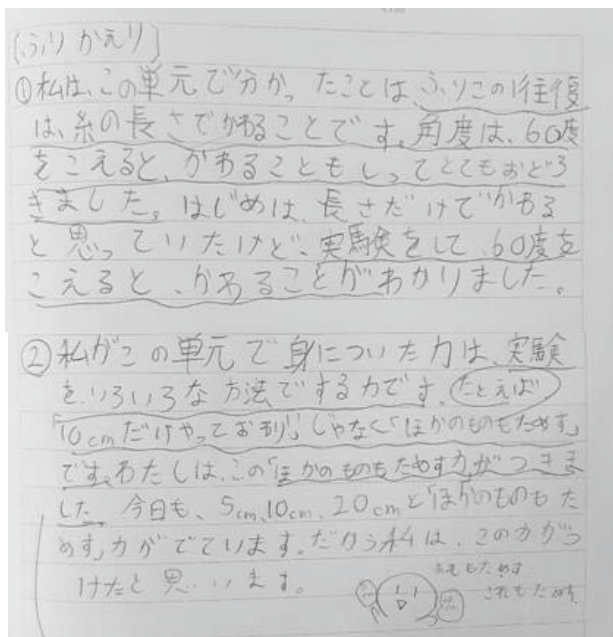 [ふりかえり]
①私は、この単元で分かったことは、ふりこの1往復
は、糸の長さでかわることです。角度は、60度
をこえると、かわることもしってとてもおどろ
きました。はじめは、長さだけでかわる
と思っていたけど、実験をして、60度を
こえると、かわることがわかりました。
②私がこの単元で身についた力は、実験
をいろいろな方法でする力です。たとえば
「10cmだけやっておわり」じゃなく「ほかのものもためす」
です。わたしは、この「ほかのものもためす力がつきま
した。今日も、5cm、10cm、20cmと「ほかのものもた
めす」力がでています。だから私は、この力がつ
けたと思います。
あれもためす
これもためす